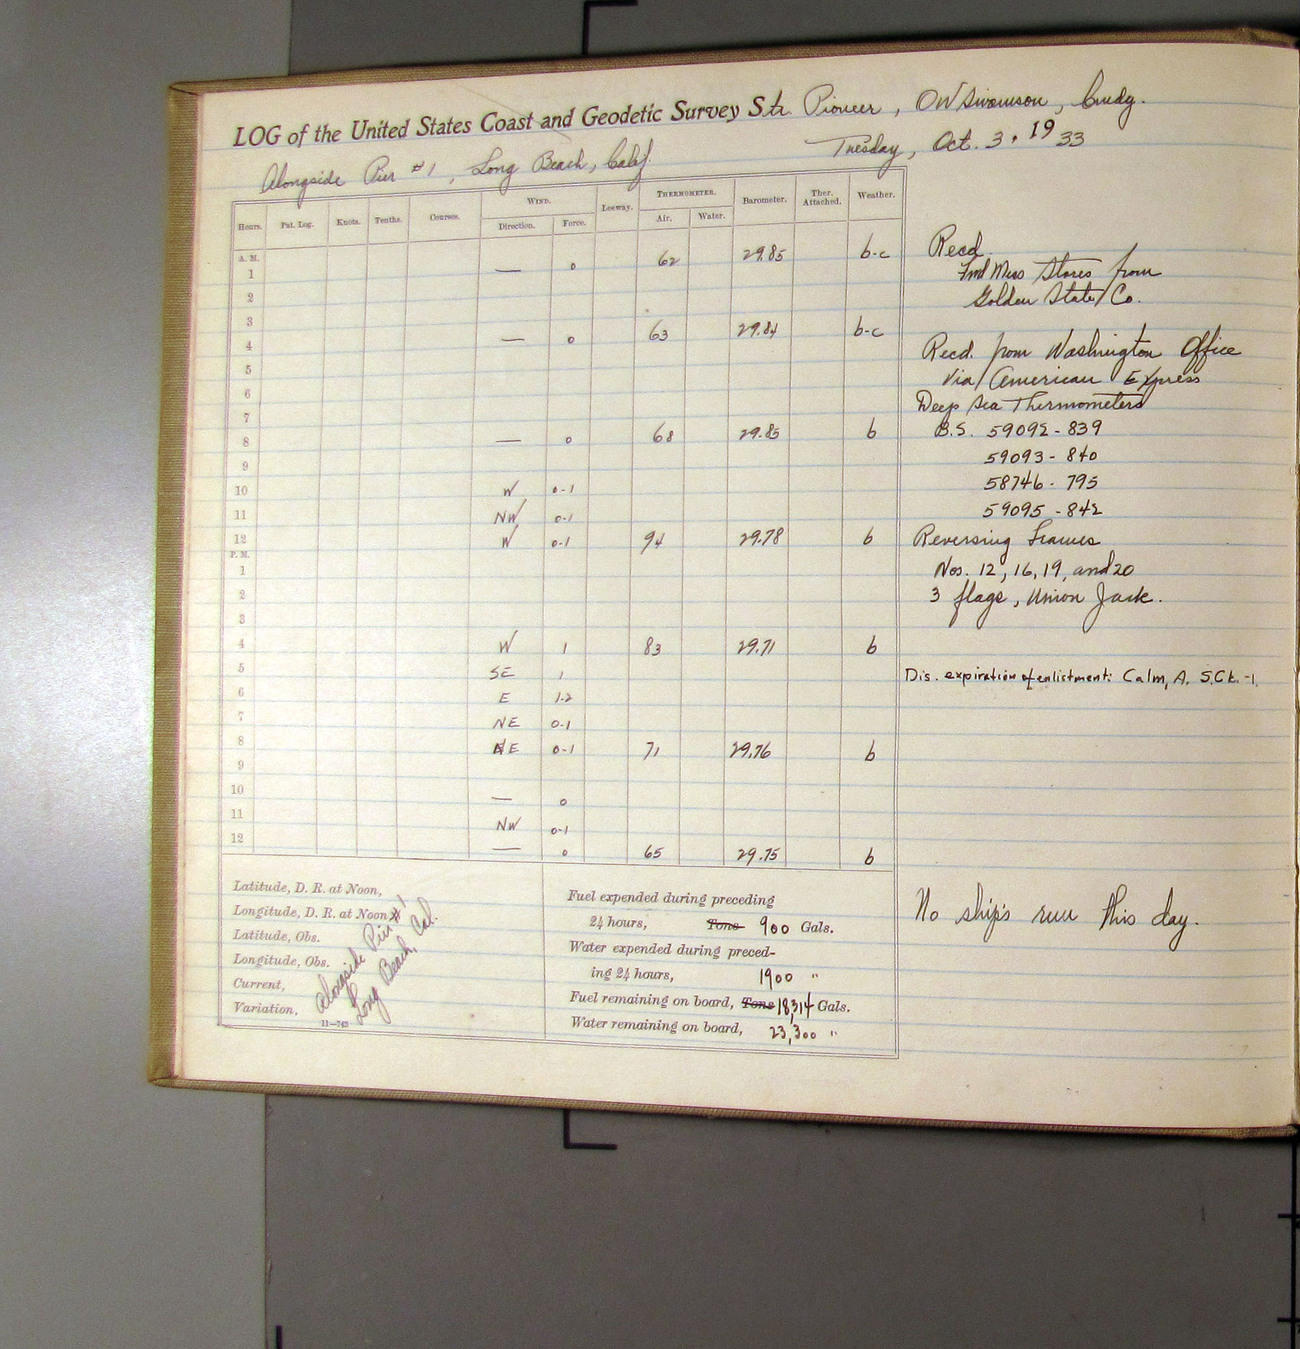 LOG of the United States Coast and Geodetic Survey Str. Pioneer, OW Swainson, Cmdg.
Alongside Pier #1, Long Beach, Calif. Tuesday, Oct. 3, 1933
Hours. Pat. Log. Knots. Tenths. Courses. WIND. Direction. Force. Leeway. THERMOMETER. Air. Water. Barometer. Ther. Attached. Weather.
A. M.
1 — 0 62 29.85 b-c
2
3
4 — 0 63 29.84 b-c
5
6
7
8 — 0 68 29.85 b
9
10 W 0-1
11 NW 0-1
12 W 0-1 94 29.78 b
P. M.
1
2
3
4 W 1 83 29.71 b
5 SE 1
6 E 1-2
7 NE 0-1
8 NE 0-1 71 29.76 b
9
10 — 0
11 NW 0-1
12 — 0 65 29.75 b
Recd.
Mess Stores from
Golden State Co.
Recd. from Washington Office
Via American Express
Deep Sea Thermometers
B.S. 59092-839
59093-840
58746-795
59095-842
Reversing Frames
Nos. 12, 16, 19, and 20
3 flags, Union Jack.
Dis. expiration of enlistment: Calm, A. S.Ck.-1.
No ship's run this day.
Latitude, D. R. at Noon,
Longitude, D. R. at Noon,
Latitude, Obs.
Longitude, Obs.
Current,
Variation,
Alongside Pier #1
Long Beach, Cal.
11—763
Fuel expended during preceding
24 hours, Tons 900 Gals.
Water expended during preced-
ing 24 hours, 1900 "
Fuel remaining on board, Tons 18,314 Gals.
Water remaining on board, 23,300 "